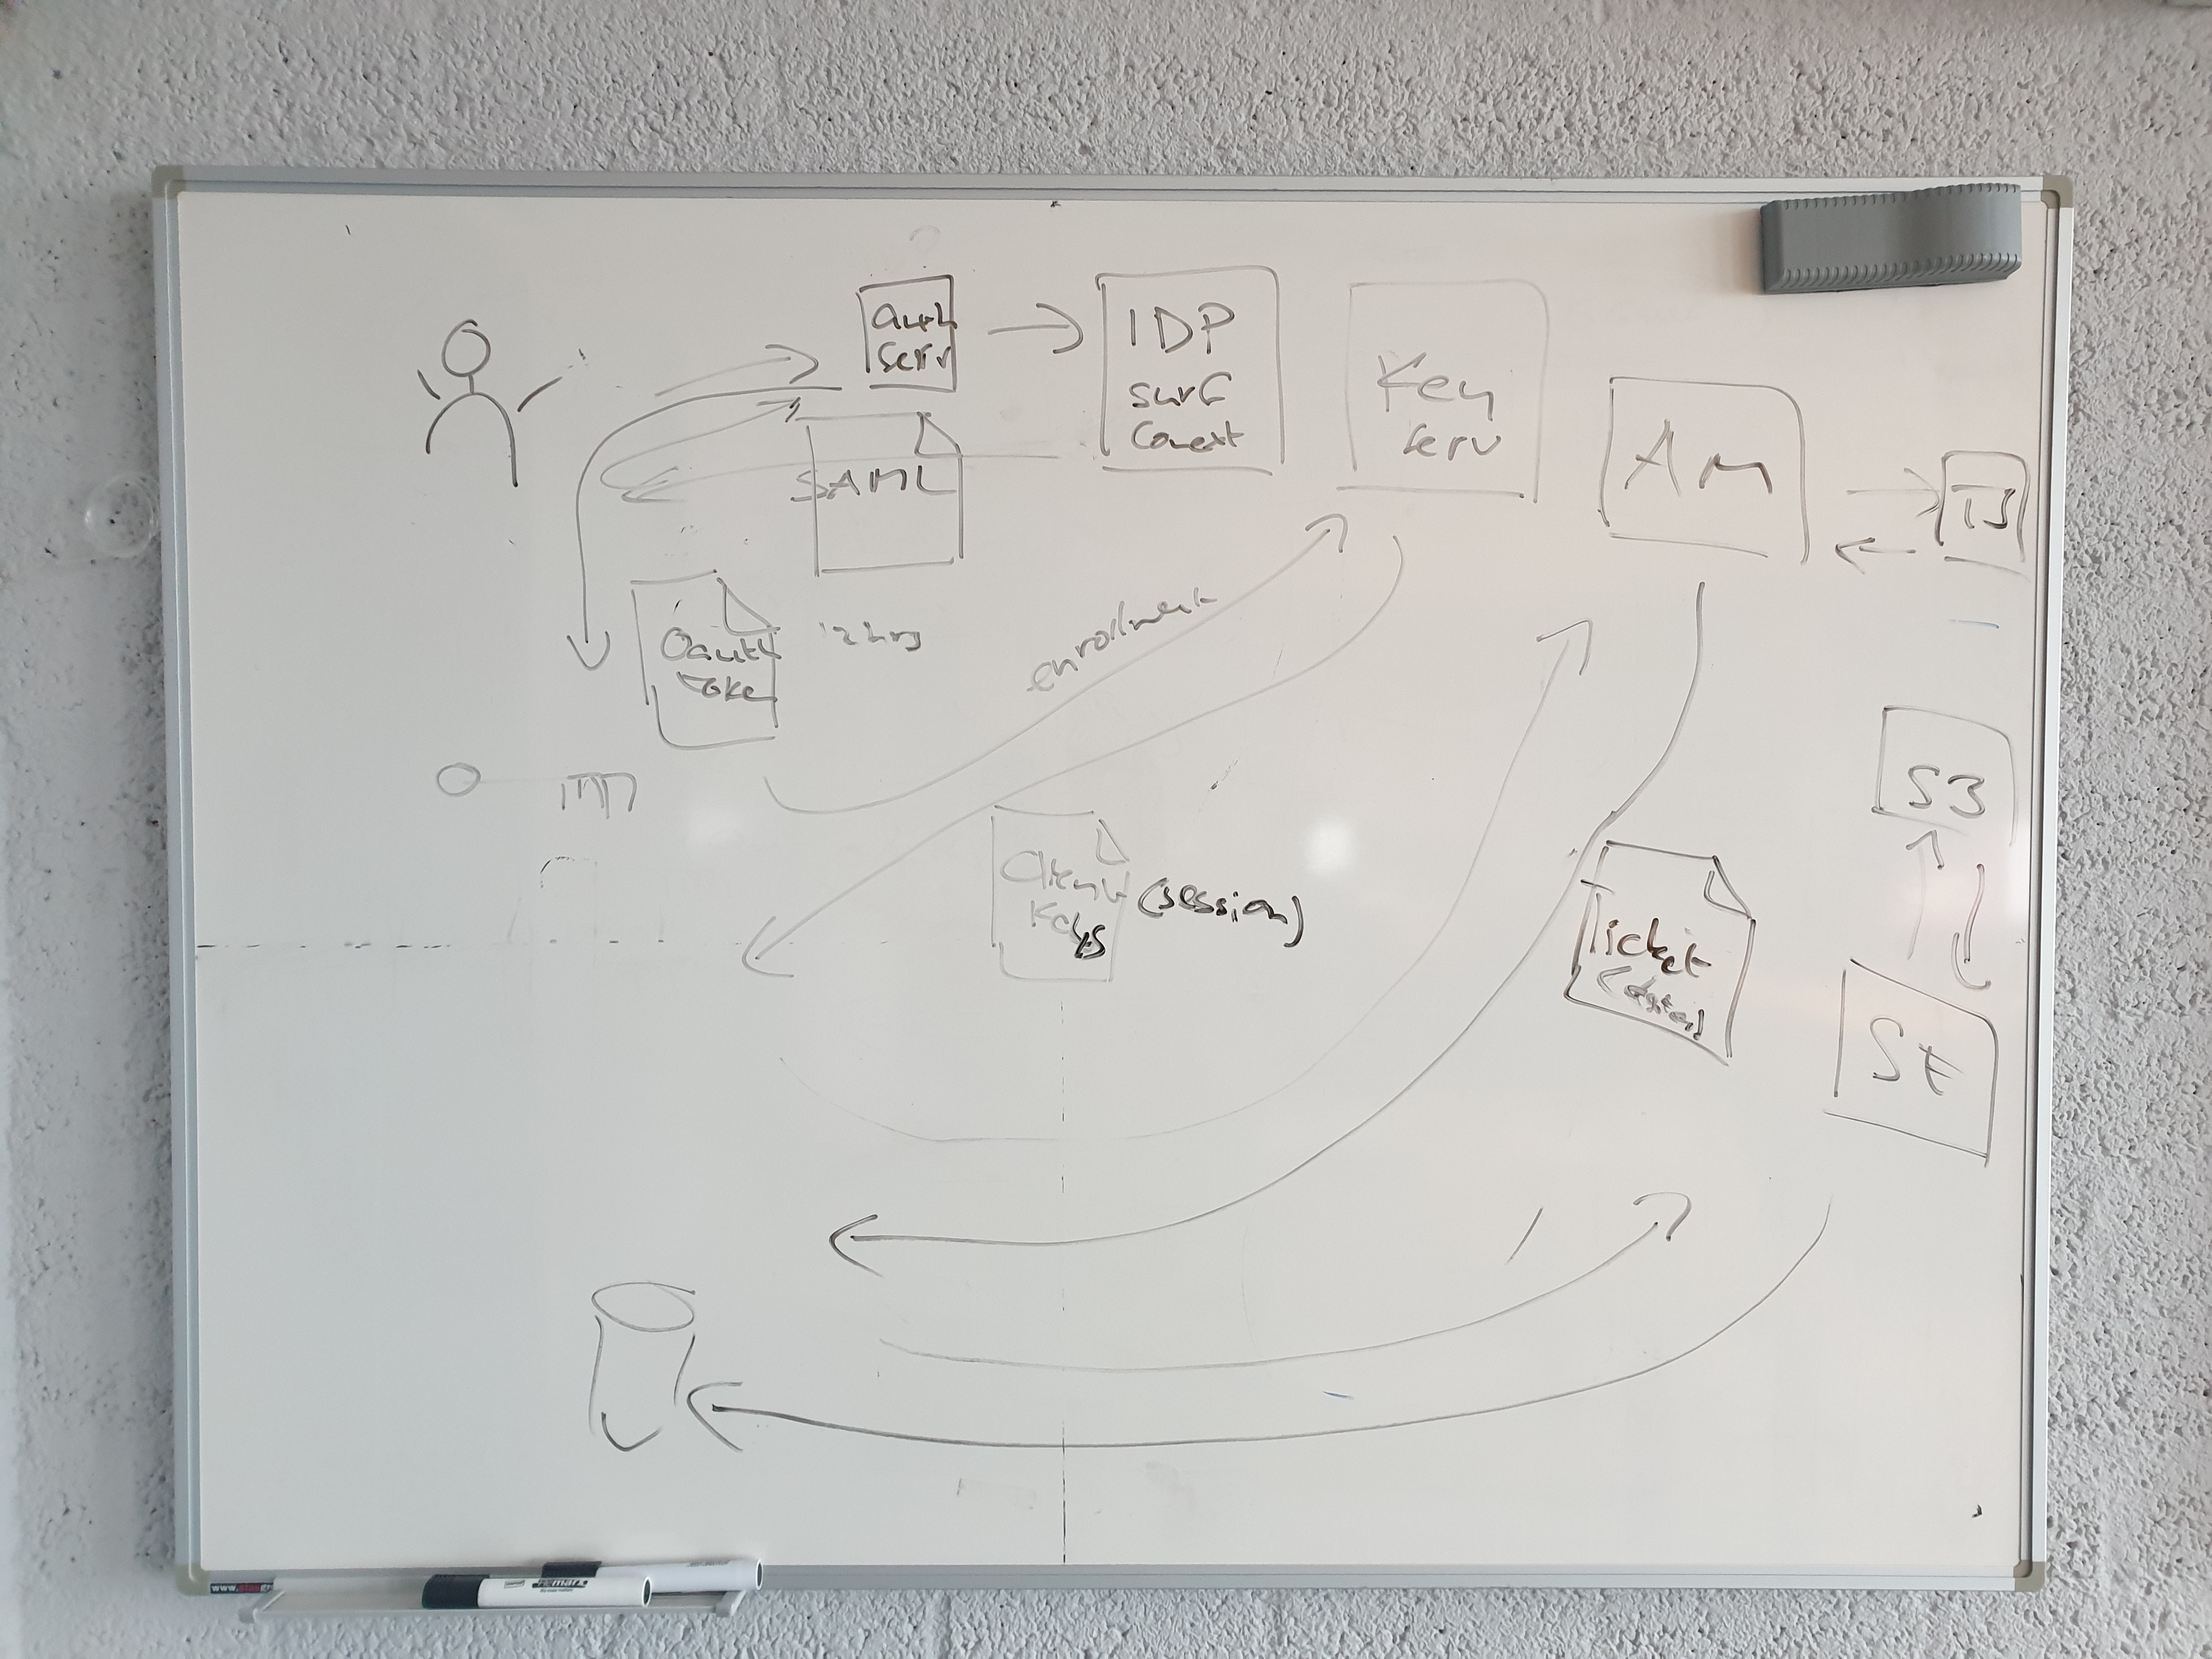 auth
serv
IDP
surf
Conext
Key
serv
AM
SAML
Oauth
Toke
enrollment
Client
Keys
(session)
Ticket
S3
www.